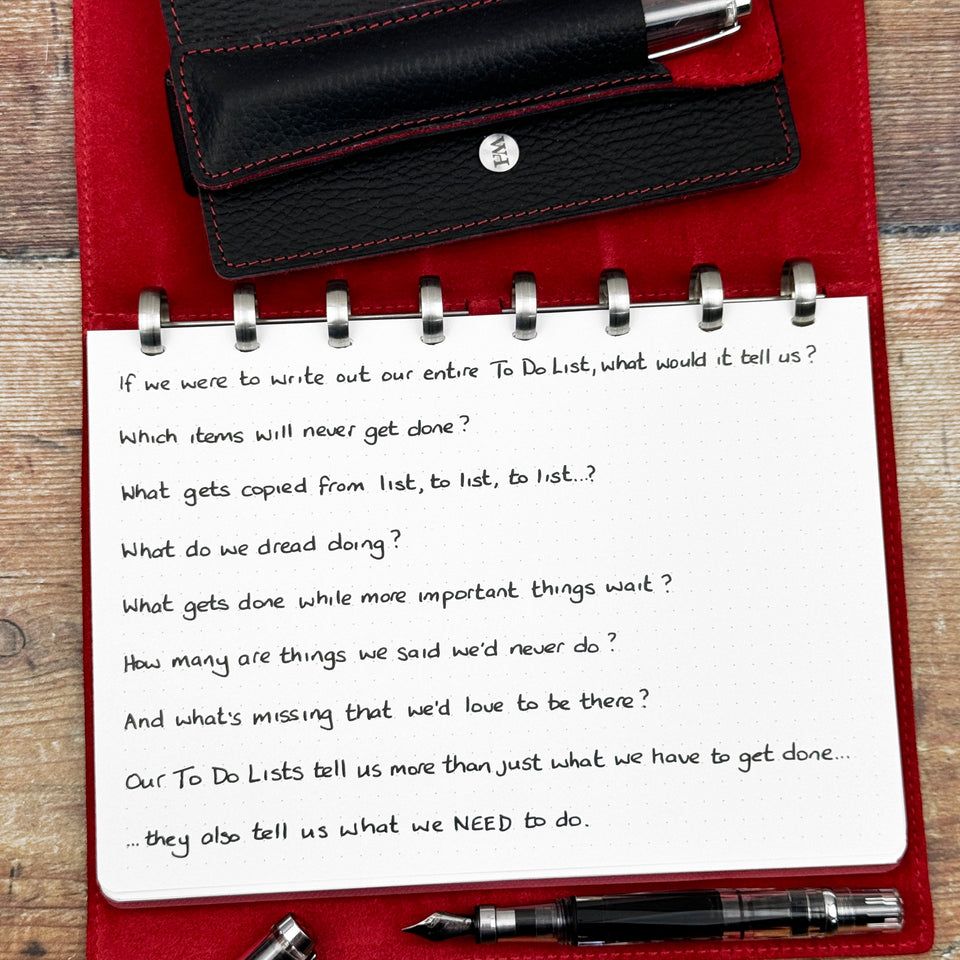 If we were to write out our entire To Do List, what would it tell us?
Which items will never get done?
What gets copied from list, to list, to list...?
What do we dread doing?
What gets done while more important things wait?
How many are things we said we'd never do?
And what's missing that we'd love to be there?
Our To Do Lists tell us more than just what we have to get done...
...they also tell us what we NEED to do.